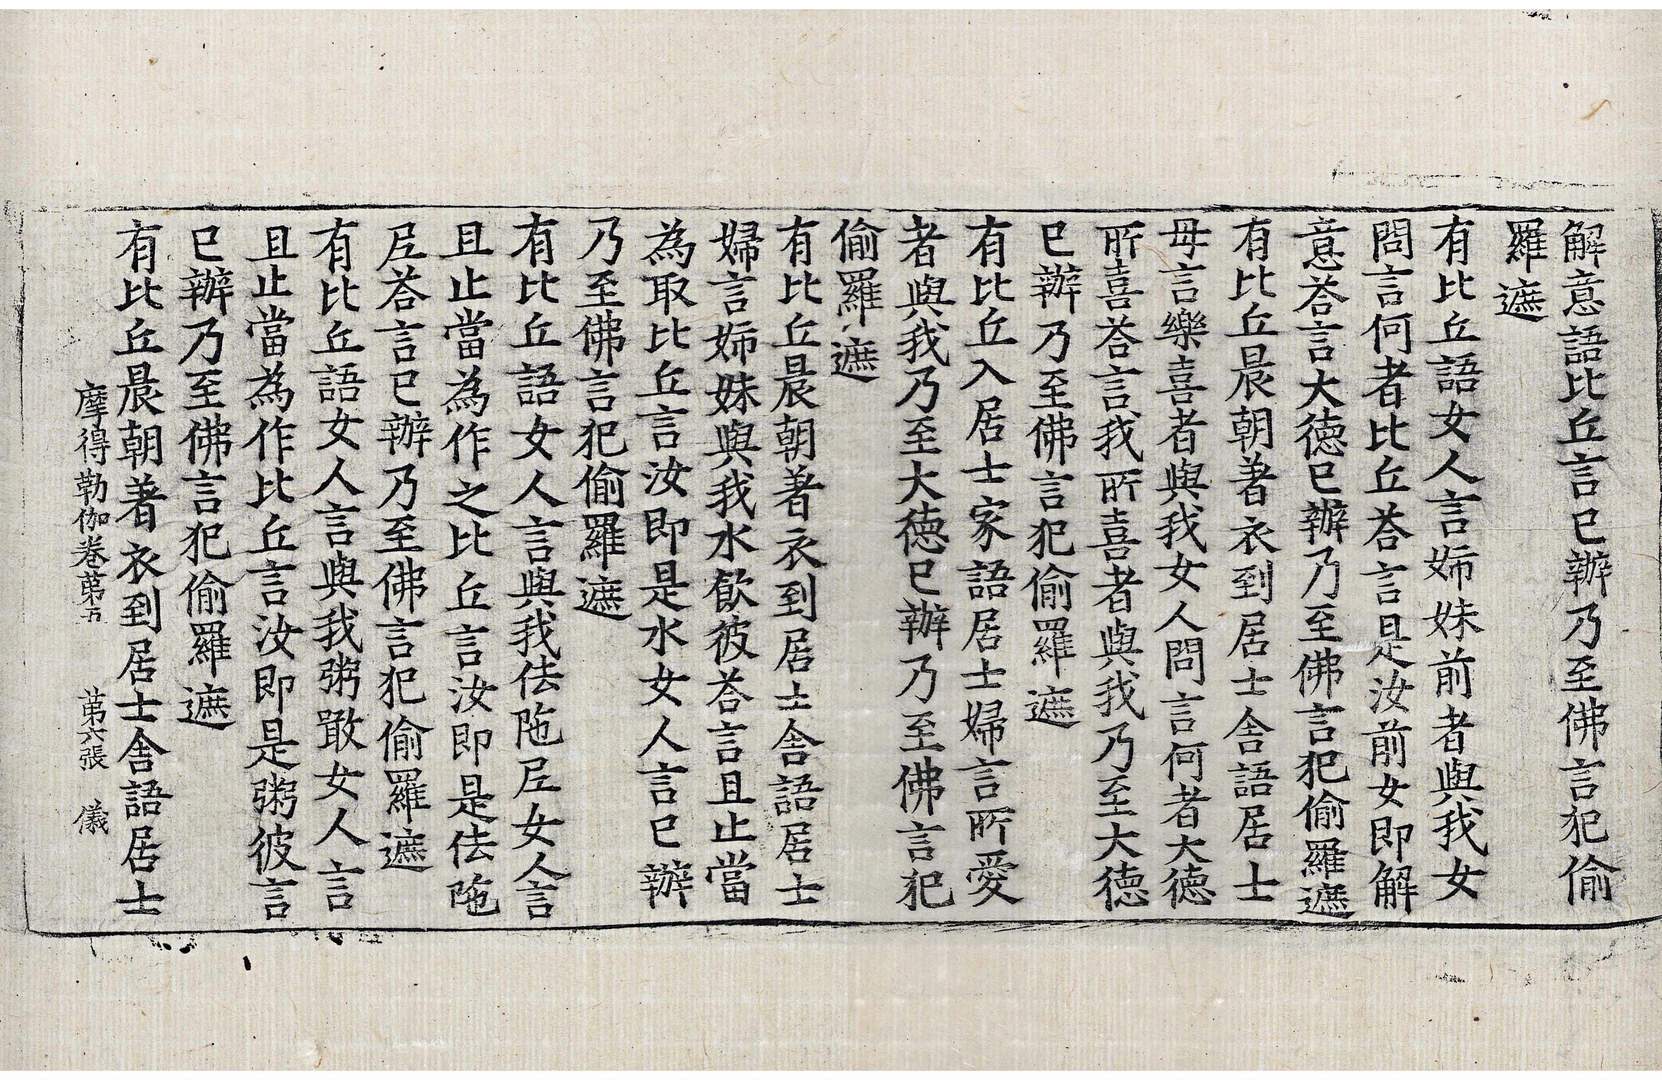 解意語比丘言已辦乃至佛言犯偷
羅遮
有比丘語女人言姉妹前者與我女
問言何者比丘荅言是汝前女即解
意荅言大德已辦乃至佛言犯偷羅遮
有比丘晨朝著衣到居士舍語居士
母言樂喜者與我女人問言何者大德
所喜荅言我所喜者與我乃至大德
已辦乃至佛言犯偷羅遮
有比丘入居士家語居士婦言所愛
者與我乃至大德已辦乃至佛言犯
偷羅遮
有比丘晨朝著衣到居士舍語居士
婦言姉妹與我水飲彼荅言且止當
為取比丘言汝即是水女人言已辦
乃至佛言犯偷羅遮
有比丘語女人言與我佉陁尼女人言
且止當為作之比丘言汝即是佉陁
尼荅言已辦乃至佛言犯偷羅遮
有比丘語女人言與我粥噉女人言
且止當為作比丘言汝即是粥彼言
已辦乃至佛言犯偷羅遮
有比丘晨朝著衣到居士舍語居士
摩得勒伽卷第五 第六張 儀